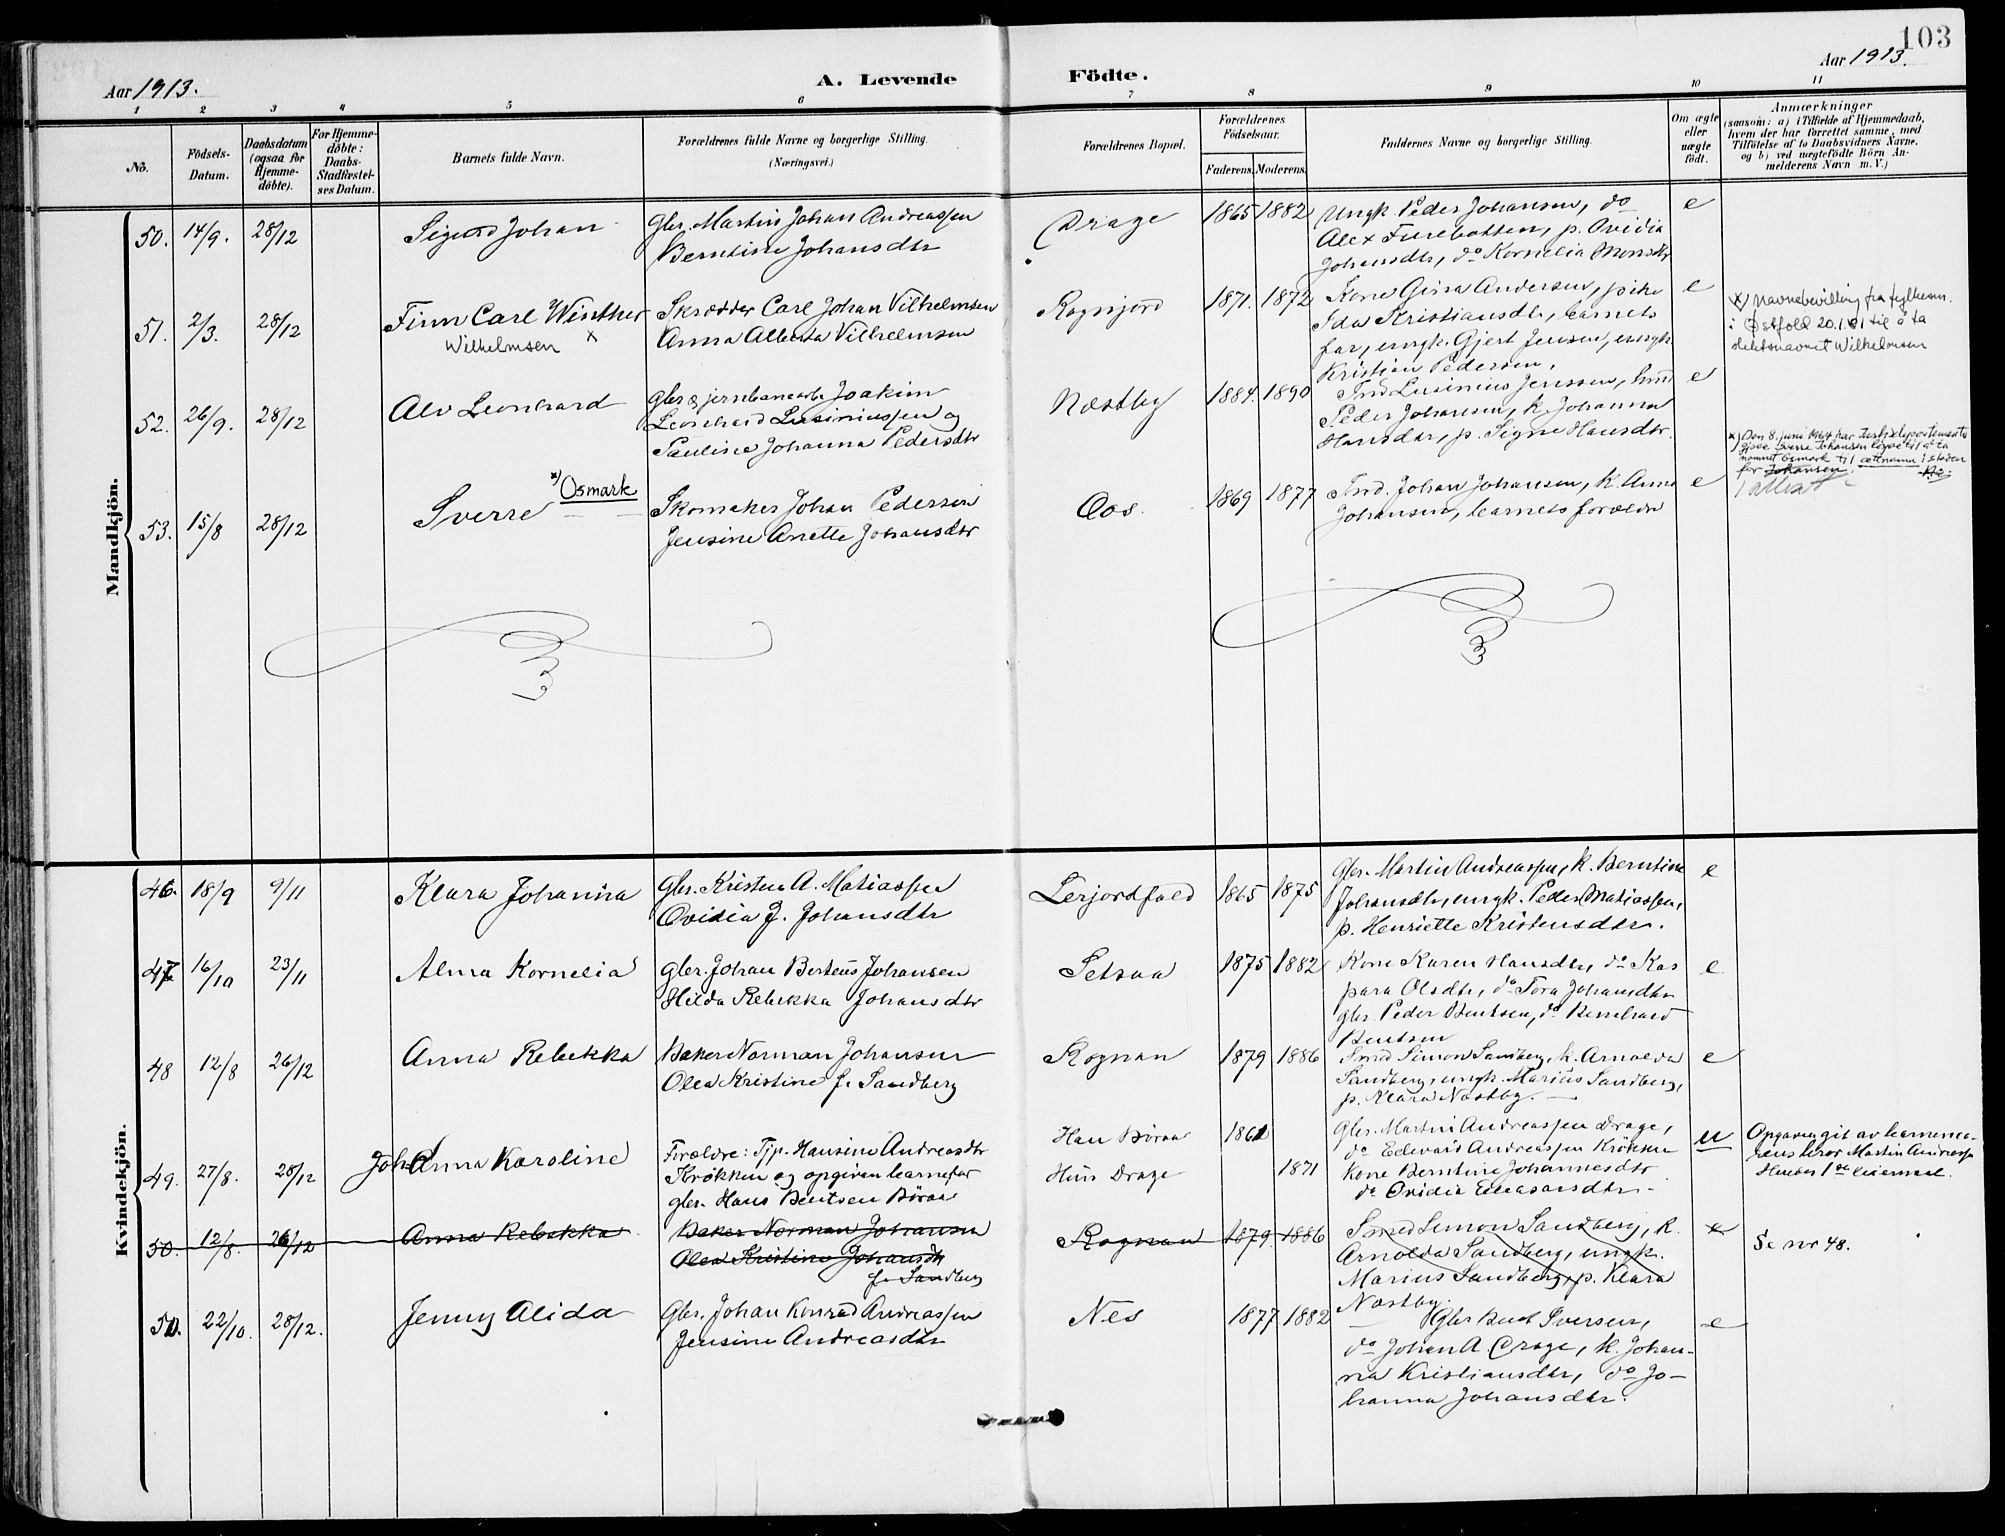 103
Aar 1913.
A. Levende
Födte.
Aar 1913.
1 2 3 4 5 6 7 8 9 10 11
No.
Födsels-Datum.
Daabsdatum (ogsaa for Hjemme-döbte).
For Hjemme-döbte: Daabs-Stadfæstel-ses Datum.
Barnets fulde Navn.
Forældrenes fulde Navne og borgerlige Stilling.
(Næringsvei.)
Forældrenes Bopæl.
Forældrenes Födselsaar.
Faderens. Moderens.
Faddernes Navne og borgerlige Stilling.
Om ægte eller uægte födt.
Anmærkninger
(saasom: a) i Tilfælde af Hjemmedaab, hvem der har forrettet samme, med Tilföielse af to Daabsvidners Navne, og b) ved uægtefödte Börn An-melderens Navn m. V.)
Mandkjön.
50. 14/9. 28/12 Sigurd Johan
Gbr. Martin Johan Andreassen
Berntine Johansdtr
Drage 1865 1882
Ungk. Peder Johansen, do
Alex Furebotten, p. Ovidia
Johansdtr, do Kornelia Monsdtr
e
51. 2/3. 28/12 Finn Carl Winther
Wilhelmsen x
Skrædder Carl Johan Vilhelmsen
Anna Alberta Vilhelmsen
Rognjord 1871. 1872
Kone Gina Andersen, pike
Ida Kristiansdtr, barnets
far, ungk. Gjert Jensen, ungk.
Kristian Pedersen.
e
x) Navnebevilling fra fylkesm.
i Østfold 20.1.61 til å ta
slektsnavnet Wilhelmsen
52. 26/9. 28/12 Alv Leonhard
Gbr & jernbanearb. Joakim
Leonhard Lusiniussen og
Pauline Johanna Pedersdtr
Næstby 1884. 1890
Ind Lusinius Jenssen, Smd
Peder Johansen, k. Johanna
Hansdtr, p. Signe Hansdtr.
e
53. 15/8 28/12 Sverre x) Osmark
Skomaker Johan Pedersen
Jensine Anette Johansdtr
Oos. 1869 1877
Ind. Johan Johansen, k. Anna
Johansen, barnets forældre
e
x) Den 8. juni 1964 har Justisdepartementet
gjeve Sverre Johansen løyve til å ta
namnet Osmark til ættnamn i staden
for Johansen.
Kvindekjön.
46. 18/9 9/11 Klara Johanna
Gbr. Kristen A. Matiassen
Ovidia J. Johansdtr
Lerjordfald 1865 1875
Gbr. Martin Andreassen, k. Berntine
Johansdtr, ungk. Peder Matiassen,
p. Henriette Kristensdtr.
e
47 16/10 23/11 Alma Kornelia
Gbr. Johan Berteus Johansen
Hilda Rebekka Johansdtr
Setsaa 1875 1882
Kone Karen Hansdtr, do Kas
para Olsdtr, do Tora Johansdtr
gbr. Peder Bentsen, do Bernhard
Bentsen
e
48 12/8 26/12 Anna Rebekka
Baker Norman Johansen
Olea Kristine f. Sandberg
Rognan 1879 1886
Smed Simon Sandberg, k. Arnolda
Sandberg, ungk. Marius Sandberg,
p. Klara Næstby.
e
49. 27/8. 28/12 Johanna Karoline
Forældre: Tjp. Hansine Andreasdtr
Krokken og opgiven barnefar
gbr. Hans Bentsen Böraa
Han Böraa 1861
Hun Drage 1871
Gbr. Martin Andreassen Drage,
do Edevard Andreassen Krökken
Kone Berntine Johannesdtr
do Ovidia Eliasardsdtr.
u
Opgaven git av barnemo-
rens bror Martin Andreass.
Hendes 1ste leiermaal.
50. 12/8. 26/12 Anna Rebekka
Baker Norman Johansen
Olea Kristine Johansdtr
f. Sandberg
Rognan 1879. 1886
Smed Simon Sandberg, k.
Arnolda Sandberg, ungk.
Marius Sandberg, p. Klara
Næstby.
e
Se nr 48.
50. 22/10. 28/12. Jenny Alida
Gbr. Johan Konrad Andreassen
Jensine Andreasdtr
Nes 1877 1882
Gbr Bent Iversen,
do Johan A. Drage, k. Johan-
na Kristiansdtr, do Jo-
hanna Johansdtr.
e